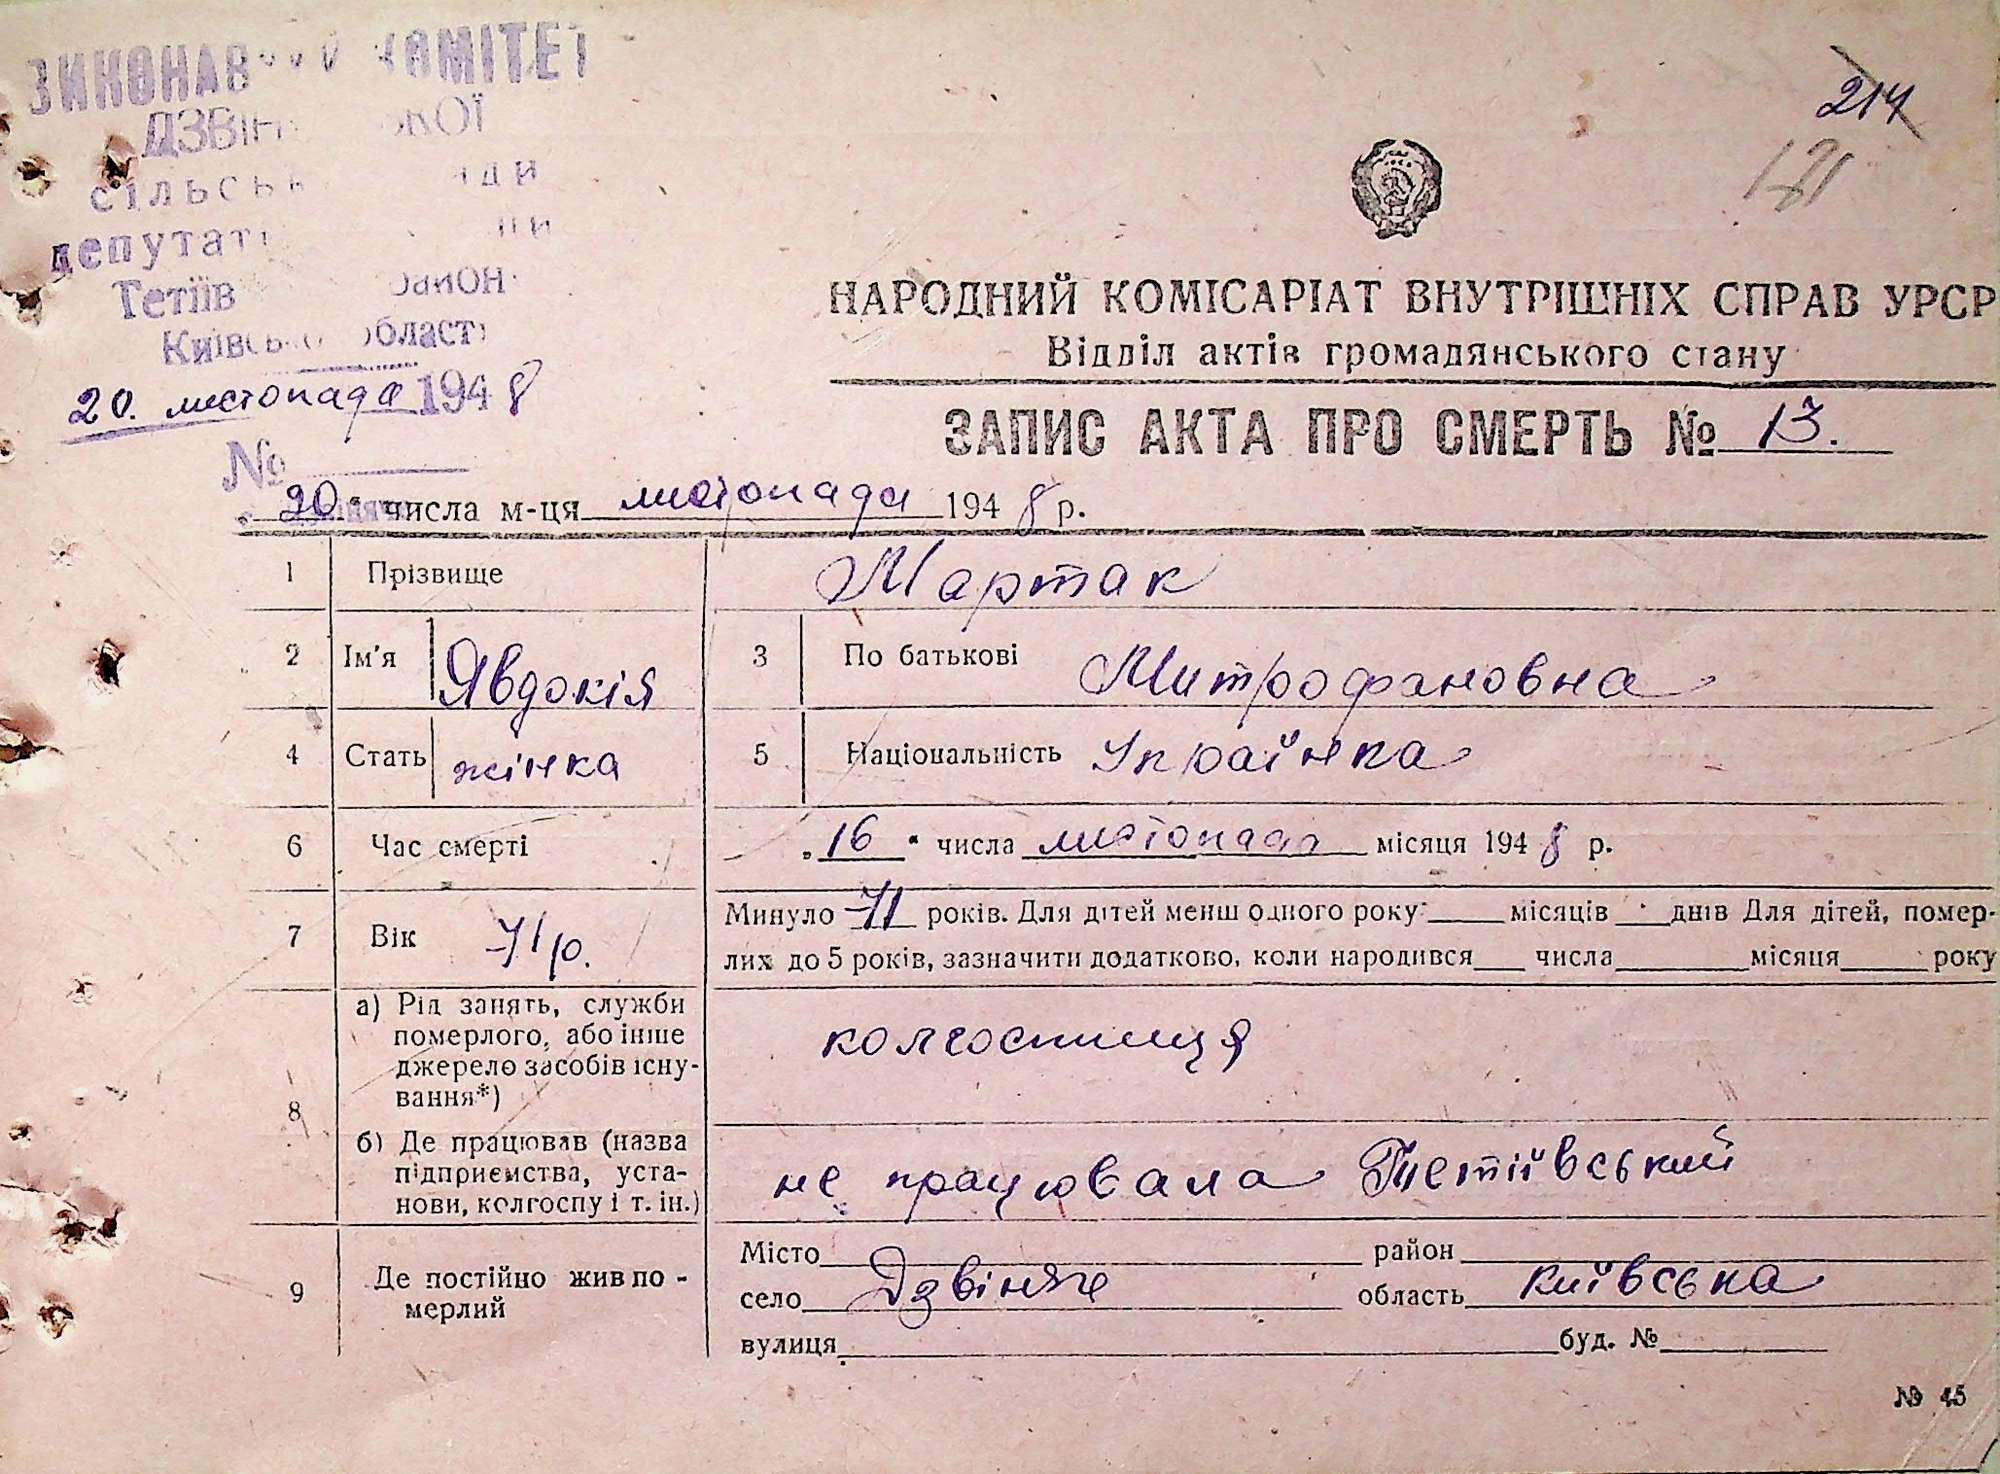 ВИКОНАВЧИЙ КОМІТЕТ
сільської ради
депутатів
Київської області
20. листопада 1948
№
217
171
НАРОДНИЙ КОМІСАРІАТ ВНУТРІШНІХ СПРАВ УРСР
Відділ актів громадянського стану
ЗАПИС АКТА ПРО СМЕРТЬ № 13.
„20" числа м-ця листопада 1948 р.
1 Прізвище Мартак
2 Ім'я Явдокія 3 По батькові Митрофановна
4 Стать жінка 5 Національність Українка
6 Час смерті „16" числа листопада місяця 1948 р.
7 Вік 71 р. Минуло 71 років. Для дітей менш одного року ____ місяців ____ днів Для дітей, помер-
лих до 5 років, зазначити додатково, коли народився ____ числа ____ місяця ____ року
8 а) Рід занять, служби
померлого, або інше
джерело засобів існу-
вання*)
колгоспниця
б) Де працював (назва
підприємства, уста-
нови, колгоспу і т. ін.)
не працювала Тетіївський
9 Де постійно жив по-
мерлий
Місто ____ район ____
село Дзвіняче область київська
вулиця ____ буд. № ____
№ 45